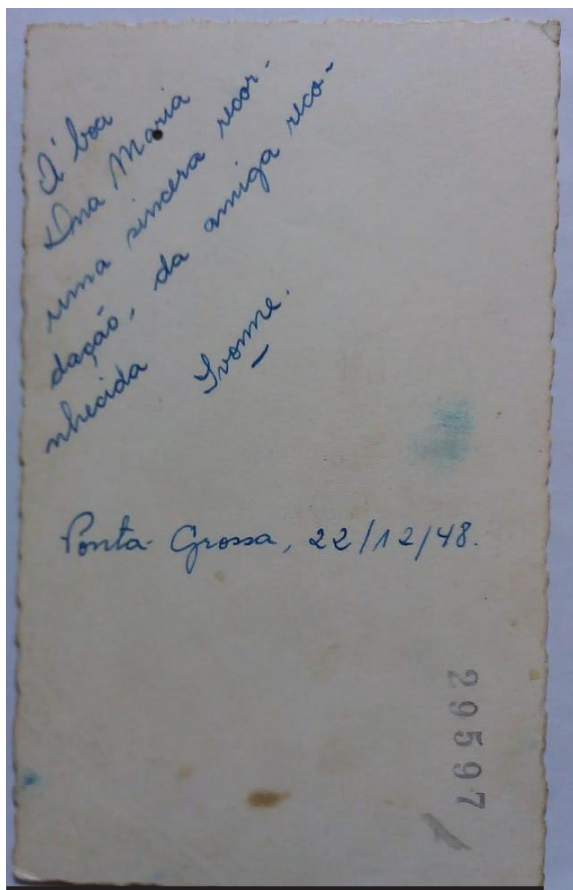 À boa
Dna Maria
uma sincera recor-
dação, da amiga reco-
nhecida Ivonne.
Ponta Grossa, 22/12/48.
29597